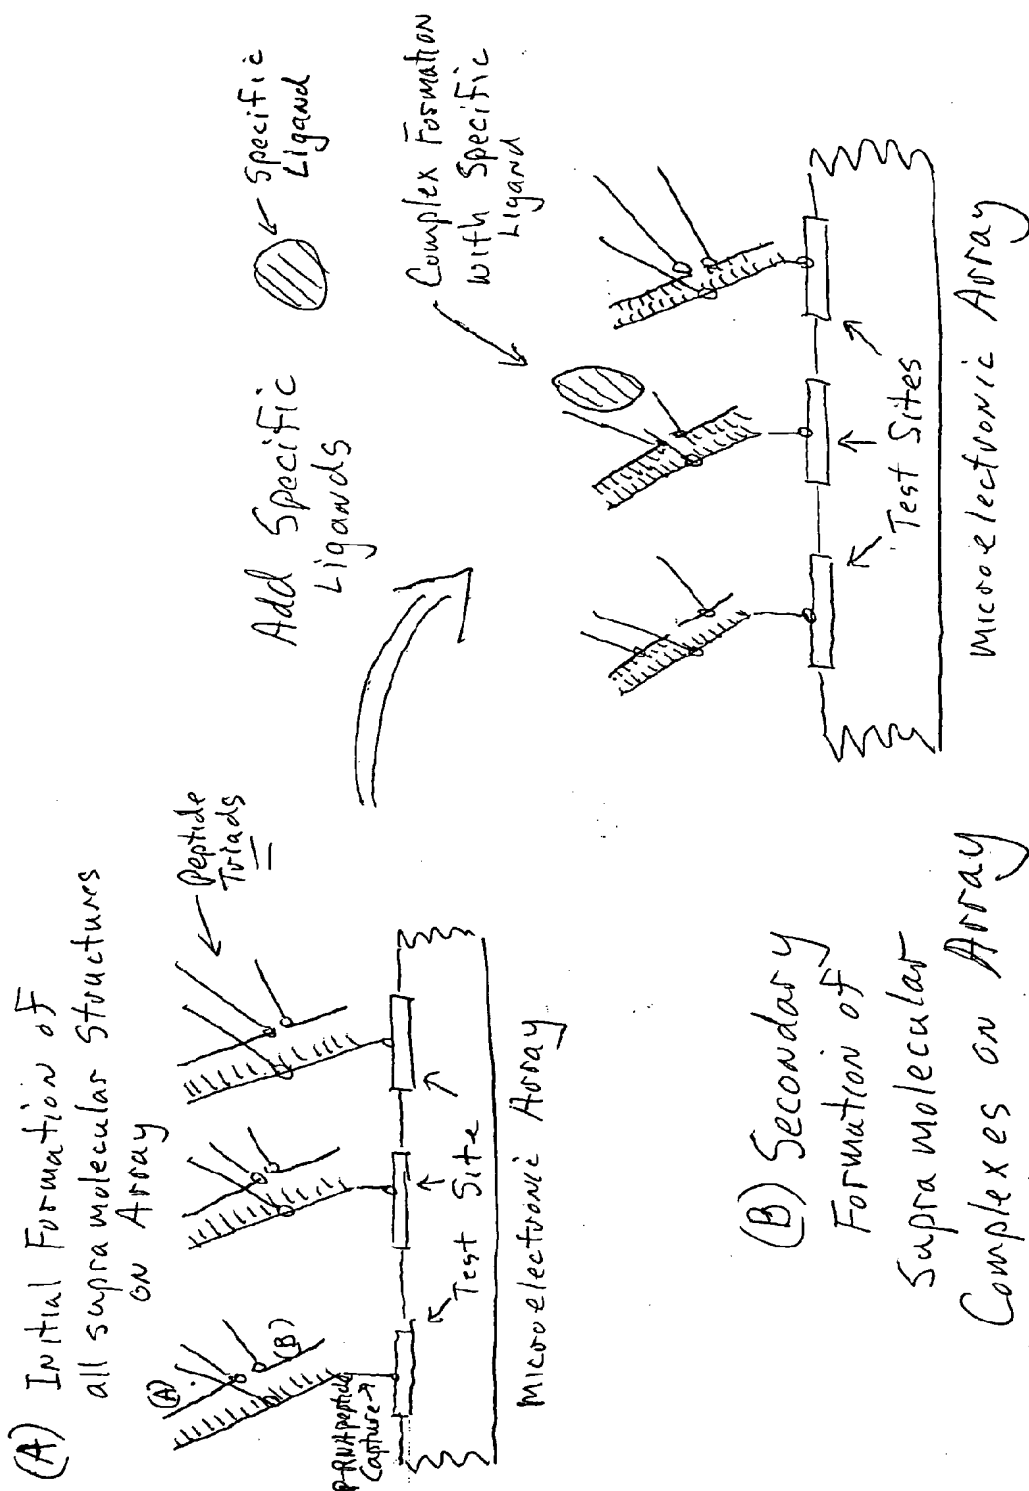 (A) Initial Formation of
all supramolecular Structures
on Array
Peptide
Triads
(A)
(B)
P-RNA peptide
Capture
Test Site
Microelectronic Array
Add Specific
Ligands
Specific
Ligand
Complex Formation
with Specific
Ligand
Test Sites
Microelectronic Array
(B) Secondary
Formation of
Supramolecular
Complexes on Array